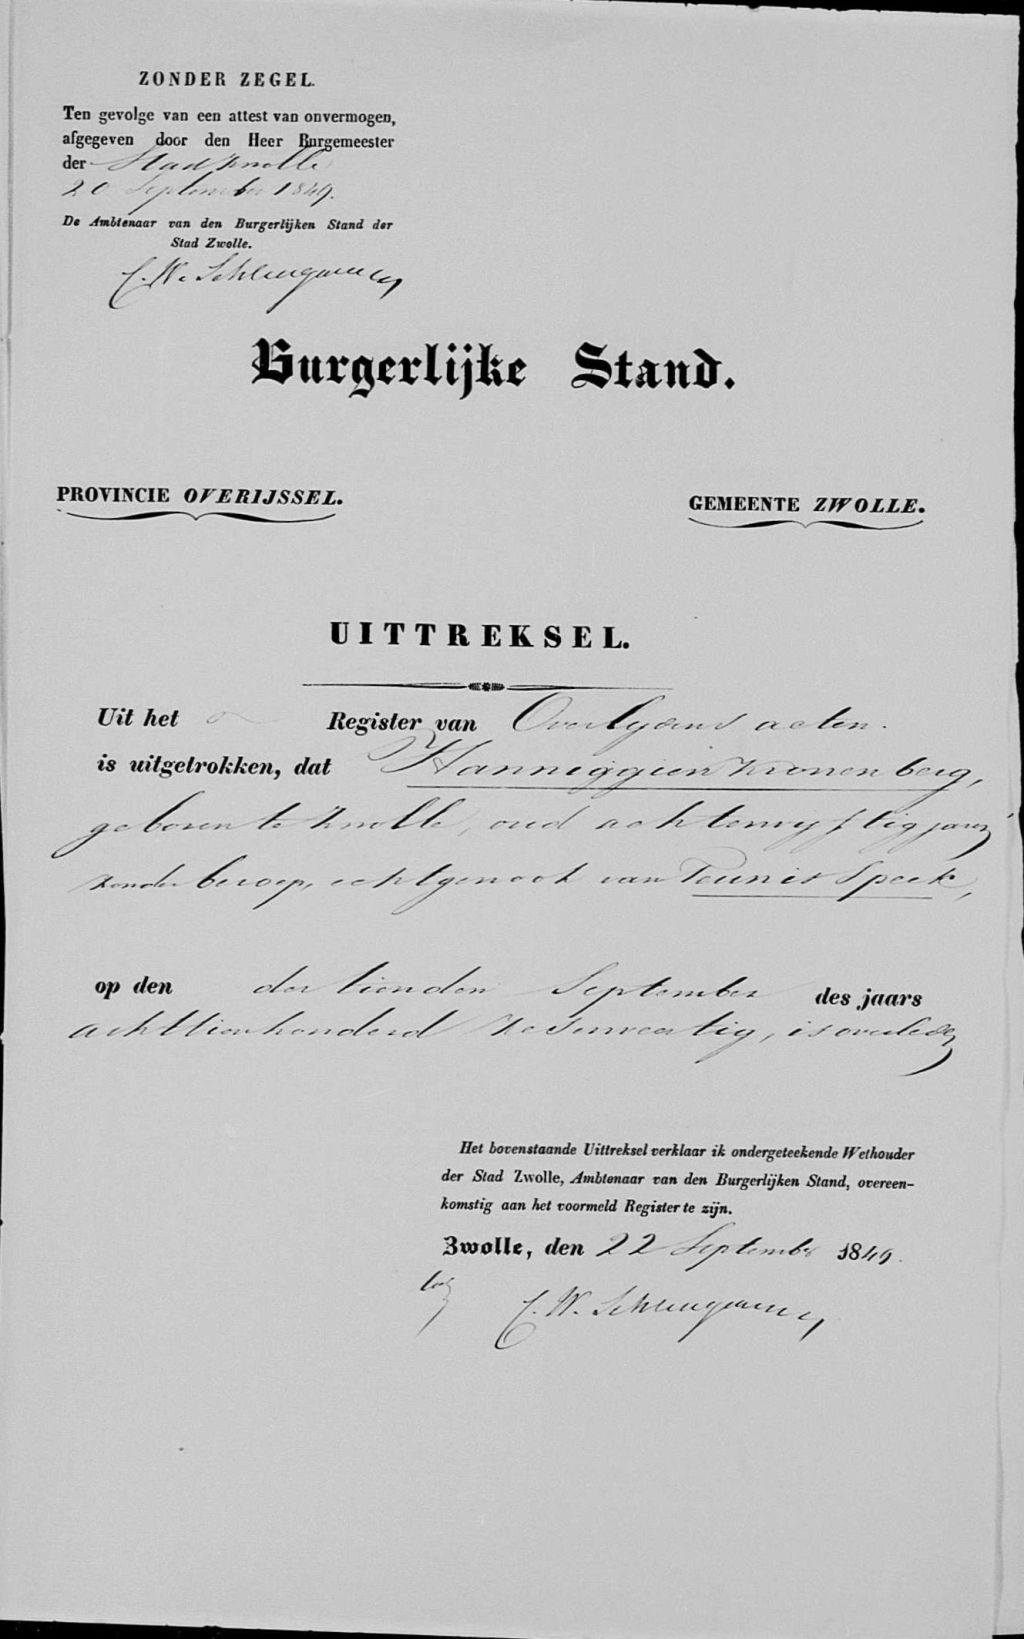 ZONDER ZEGEL.
Ten gevolge van een attest van onvermogen,
afgegeven door den Heer Burgemeester
der Stad Zwolle
20 September 1849.
De Ambtenaar van den Burgerlijken Stand der
Stad Zwolle.
C. W.
Burgerlijke Stand.
PROVINCIE OVERIJSSEL.
GEMEENTE ZWOLLE.
UITTREKSEL.
Uit het Register van Overlydens acten.
is uitgetrokken, dat Hanniggien Kronenberg,
geboren te Zwolle, oud achtenvyftig jaren
zonder beroep, echtgenoot van Teunis Speek,
op den dertienden September des jaars
achttienhonderd zesenveertig, is overleden
Het bovenstaande Uittreksel verklaar ik ondergeteekende Wethouder
der Stad Zwolle, Ambtenaar van den Burgerlijken Stand, overeen-
komstig aan het voormeld Register te zijn.
Zwolle, den 22 September 1849.
C. W.